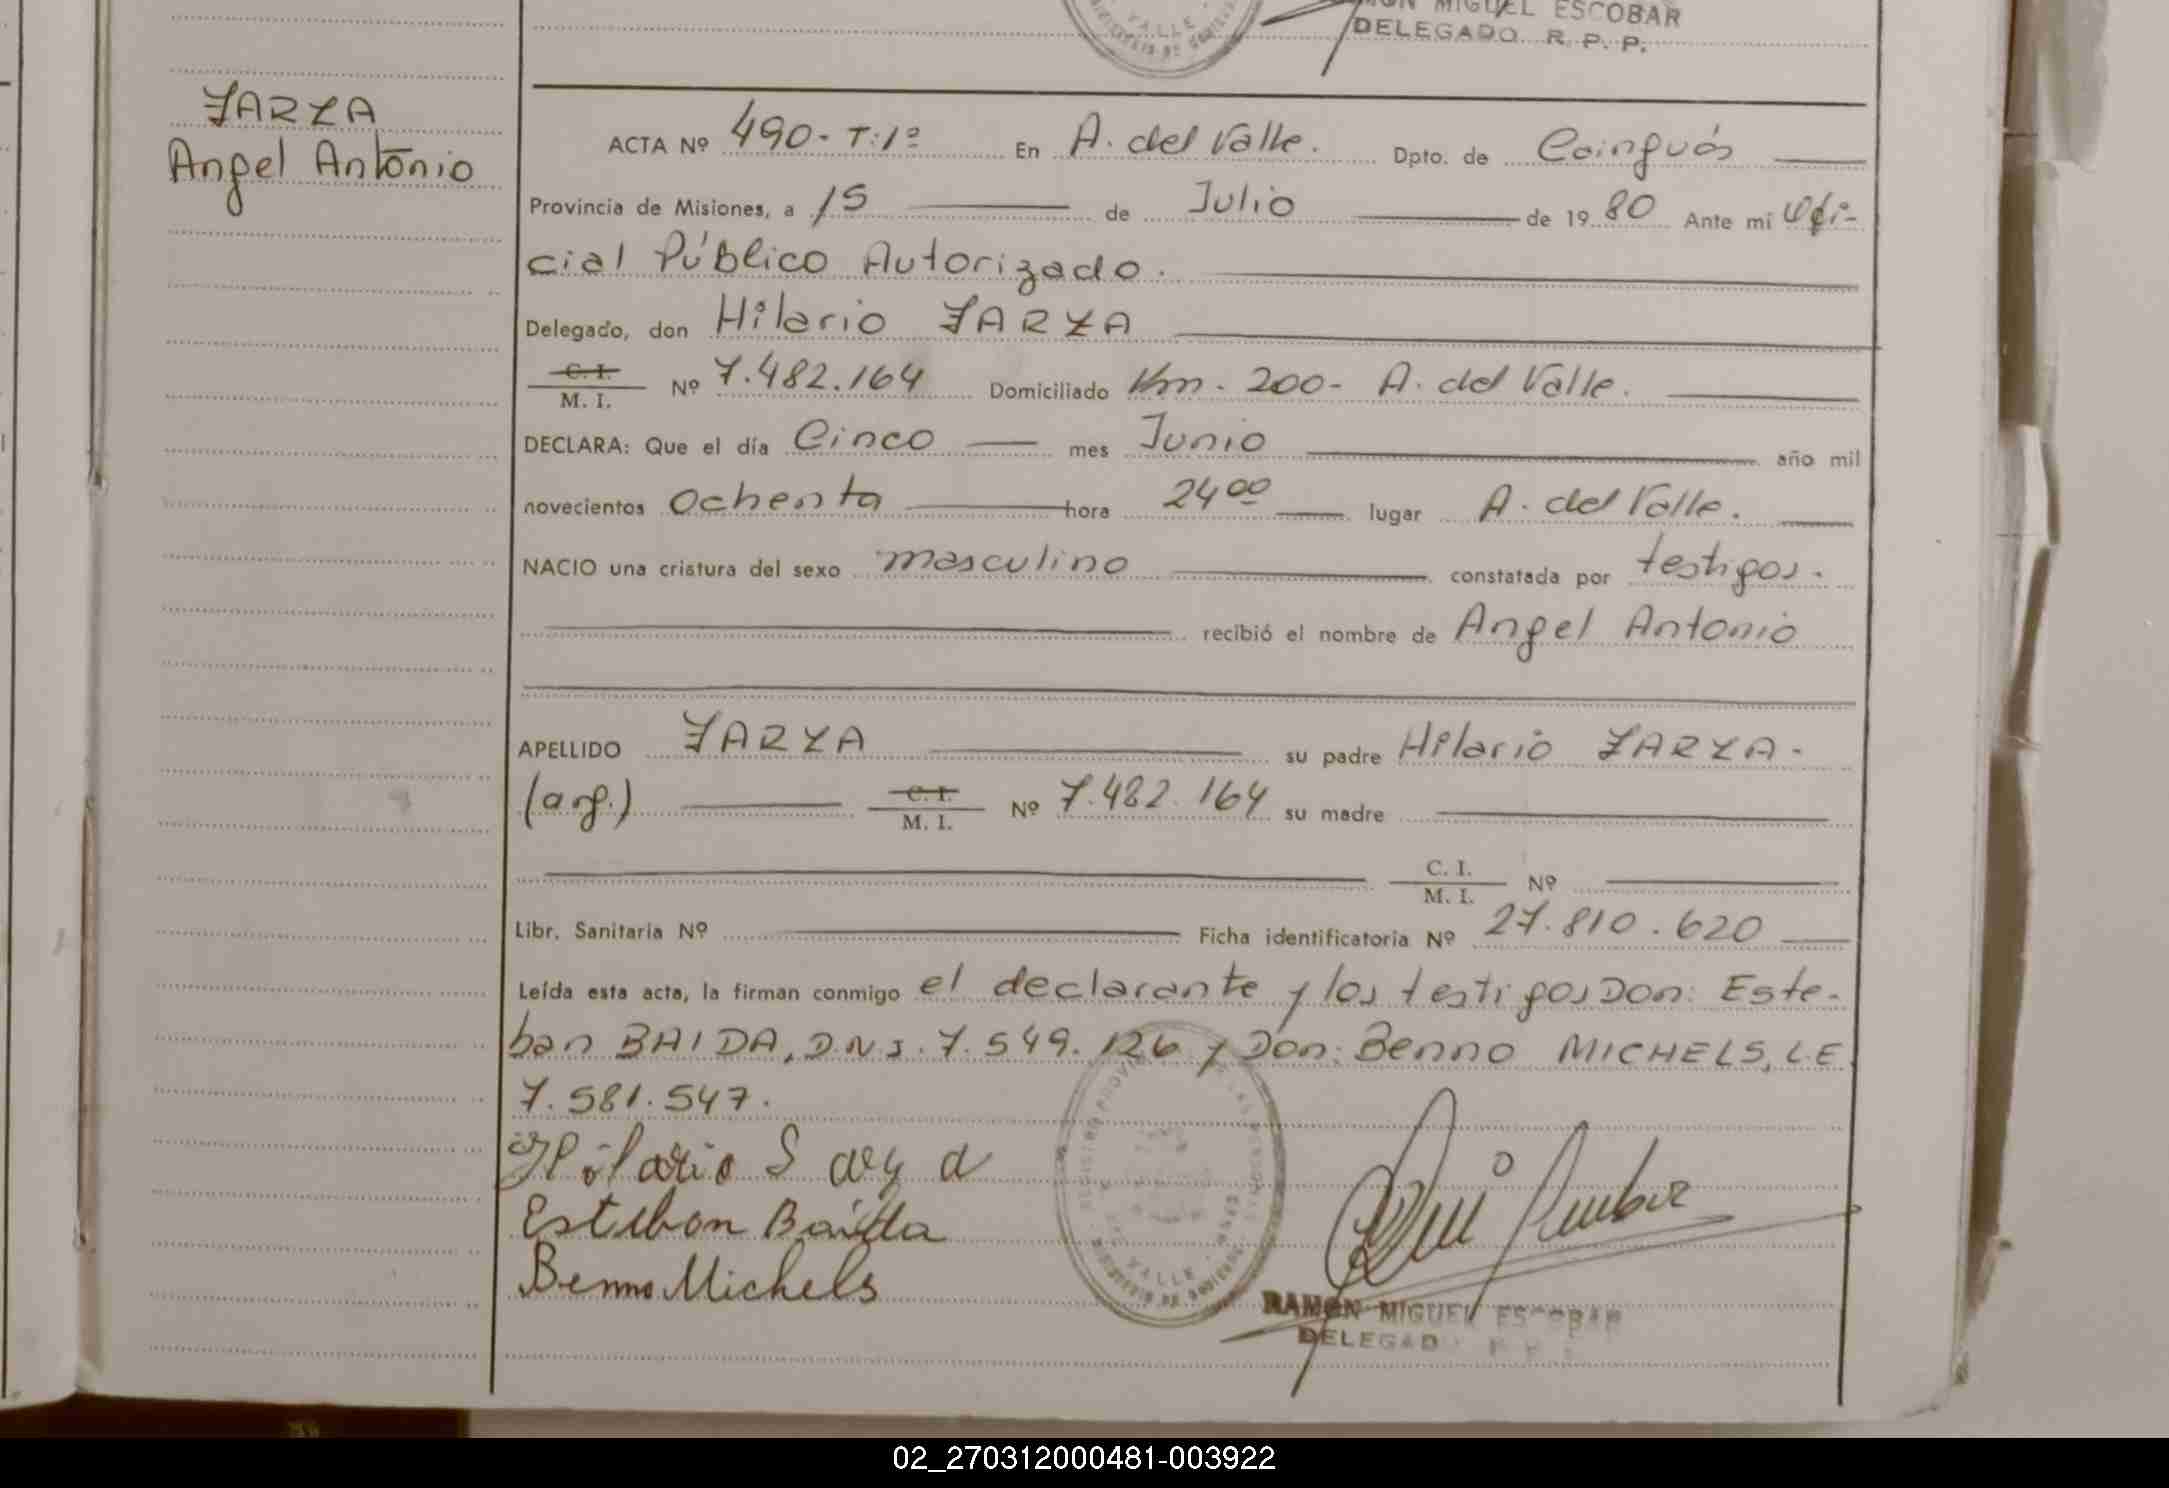 MIGUEL ESCOBAR
DELEGADO R. P. P.
VALLE
ZARZA
Angel Antonio
ACTA Nº 490- T:1º En A. del Valle. Dpto. de Cainguás
Provincia de Misiones, a 15 de Julio de 1980 Ante mi Ofi-
cial Público Autorizado.
Delegado, don Hilario ZARZA
C. I.
M. I. Nº 7.482.164 Domiciliado Km. 200- A. del Valle.
DECLARA: Que el día Cinco mes Junio año mil
novecientos Ochenta hora 24 00 lugar A. del Valle.
NACIO una criatura del sexo masculino constatada por testigos.
recibió el nombre de Angel Antonio
APELLIDO ZARZA su padre Hilario ZARZA-
(arg.) C. I.
M. I. Nº 7.482.164 su madre
C. I.
M. I. Nº
Libr. Sanitaria Nº Ficha identificatoria Nº 27.810.620
Leída esta acta, la firman conmigo el declarante y los testigos Don: Este-
ban BAIDA, D.N.I. 7.549.126 y Don: Benno MICHELS, L.E
7.581.547.
Hilario
Esteban Baida
Benno Michels
VALLE
RAMON MIGUEL ESCOBAR
DELEGAD
02_270312000481-003922